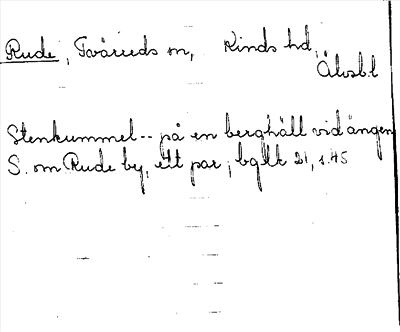 Rude, Tväreds sn, Kinds hd,
Älvsb.l
Stenkummel-- på en berghäll vid ängen
S. om Rude by, ett par; bglk 21, s. 45